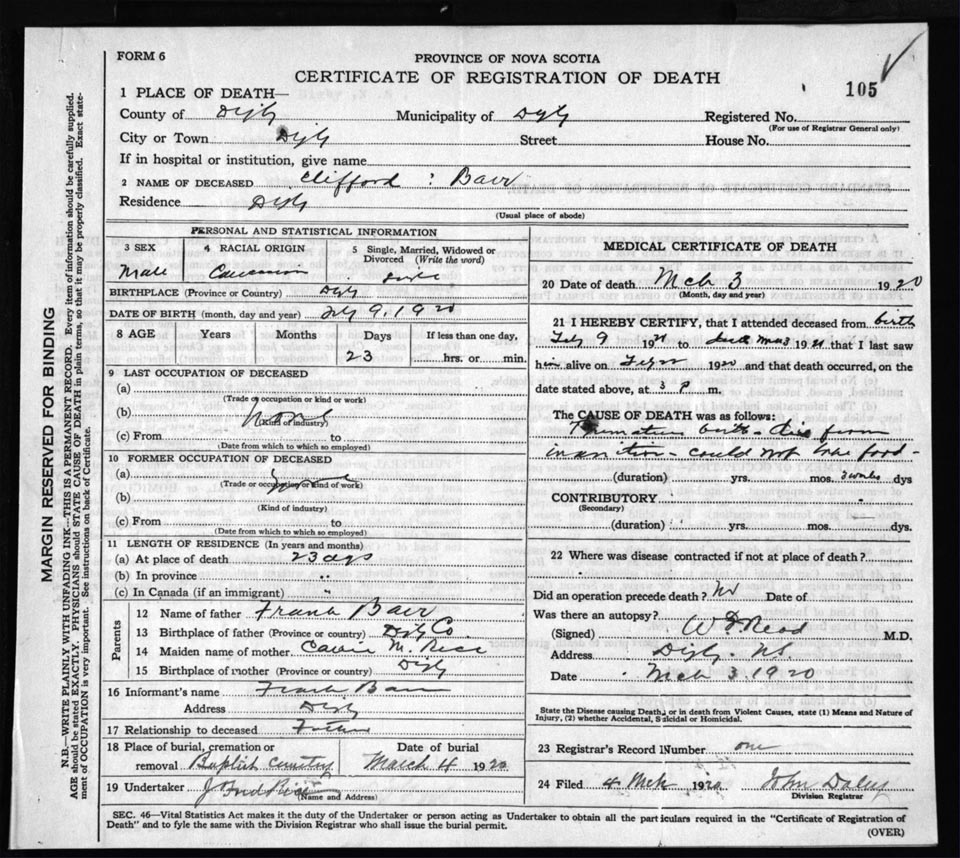 FORM 6
PROVINCE OF NOVA SCOTIA
CERTIFICATE OF REGISTRATION OF DEATH
105
1 PLACE OF DEATH—
County of Digby Municipality of Digby Registered No.
(For use of Registrar General only)
City or Town Digby Street House No.
If in hospital or institution, give name
2 NAME OF DECEASED Clifford : Baer
Residence Digby
(Usual place of abode)
PERSONAL AND STATISTICAL INFORMATION
3 SEX 4 RACIAL ORIGIN 5 Single, Married, Widowed or Divorced (Write the word)
Male Caucasian
BIRTHPLACE (Province or Country) Digby
DATE OF BIRTH (month, day and year) 9, 1920
8 AGE Years Months Days If less than one day,
23 hrs. or min.
9 LAST OCCUPATION OF DECEASED
(a)
(Trade or occupation or kind of work)
(b) None
(Kind of industry)
(c) From to
(Date from which to which so employed)
10 FORMER OCCUPATION OF DECEASED
(a)
(Trade or occupation or kind of work)
(b)
(Kind of industry)
(c) From to
(Date from which to which so employed)
11 LENGTH OF RESIDENCE (In years and months)
(a) At place of death 23
(b) In province "
(c) In Canada (if an immigrant) "
Parents
12 Name of father Frank Baer
13 Birthplace of father (Province or country) Digby Co.
14 Maiden name of mother M. Rice
15 Birthplace of mother (Province or Country) Digby
16 Informant's name Frank Baer
Address Digby
17 Relationship to deceased Father
18 Place of burial, cremation or removal Baptist Cemetery
Date of burial March 4 1920
19 Undertaker J Rice
(Name and Address)
MEDICAL CERTIFICATE OF DEATH
20 Date of death Mch 3 1920
(Month, day and year)
21 I HEREBY CERTIFY, that I attended deceased from birth
9 19 to 19 that I last saw
him alive on 1920 and that death occurred, on the
date stated above, at 3 P m.
The CAUSE OF DEATH was as follows:
Premature birth - from
inanition - could not food -
(duration) yrs. mos. 3 weeks dys
CONTRIBUTORY
(Secondary)
(duration) yrs. mos. dys.
22 Where was disease contracted if not at place of death?
Did an operation precede death? No Date of
Was there an autopsy?
(Signed) W Read M.D.
Address Digby. N.S.
Date Mch 3. 1920
State the Disease causing Death, or in death from Violent Causes, state (1) Means and Nature of
Injury, (2) whether Accidental, Suicidal or Homicidal.
23 Registrar's Record Number one
24 Filed 4 Mch 1920 John Daley
Division Registrar
SEC. 46—Vital Statistics Act makes it the duty of the Undertaker or person acting as Undertaker to obtain all the particulars required in the "Certificate of Registration of
Death" and to fyle the same with the Division Registrar who shall issue the burial permit.
(OVER)
MARGIN RESERVED FOR BINDING
N.B.—WRITE PLAINLY WITH UNFADING INK—THIS IS A PERMANENT RECORD. Every item of information should be carefully supplied.
AGE should be stated EXACTLY. PHYSICIANS should STATE CAUSE OF DEATH in plain terms, so that it may be properly classified. Exact state-
ment of OCCUPATION is very important. See instructions on back of Certificate.